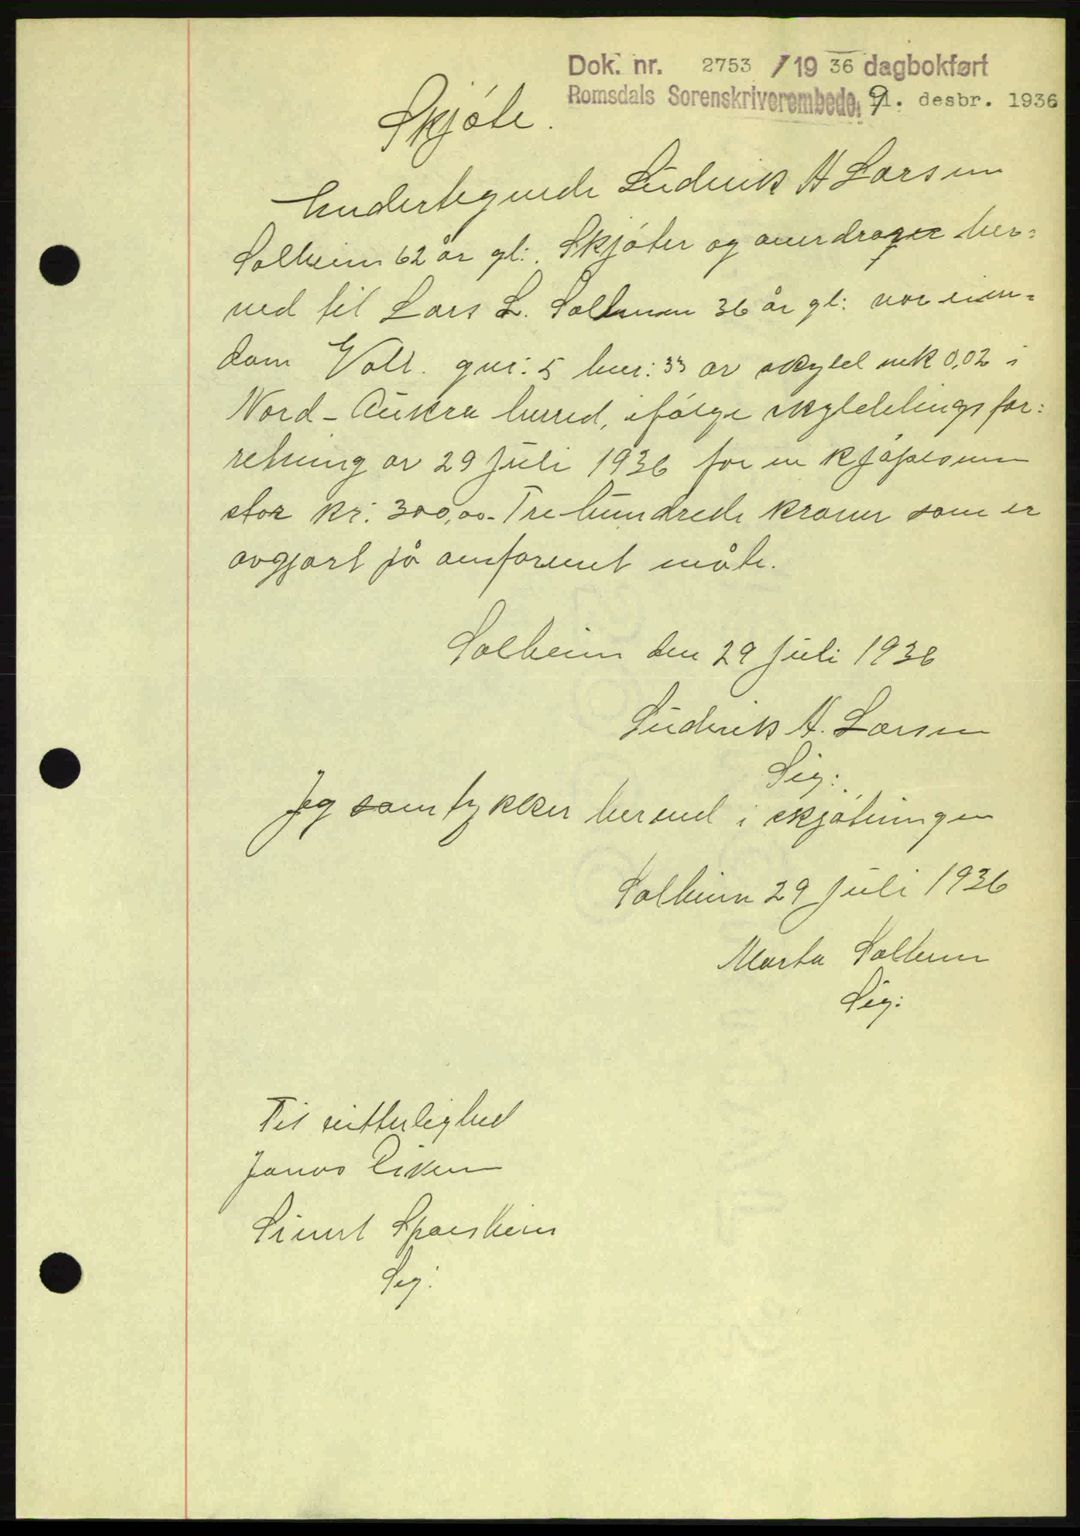 Dok. nr. 2753 / 19 36 dagbokført
Romsdals Sorenskriverembede, 9/1. desbr. 1936
Skjöte.
Undertegnede Ludvik H Larsen
Solheim 62 år gl:. Skjöter og overdrager her=
ved til Lars L. Solheim 36 år gl: vor eien=
dom Voll. gnr: 5 bnr: 33 av skyld mk 0,02 i
Nord-Aukra herred, ifölge skylddelingsfor:
retning av 29 juli 1936 for en kjöpesum
stor kr: 300,00 - Trehundrede kroner som er
avgjort på omforenet måte.
Solheim den 29 juli 1936
Ludvik H. Larsen
Sig:
Jeg samtykker herved i skjötningen
Solheim 29 juli 1936
Marta Solheim
Sig:
Til vitterlighed
Jonas
Sivert
Sig: